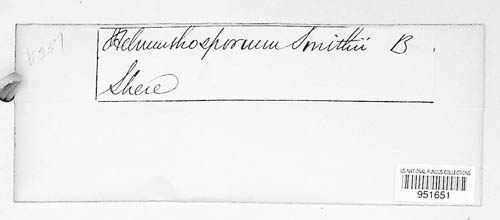 Helminthosporium Smithii B.
Shere
US NATIONAL FUNGUS COLLECTIONS
951651